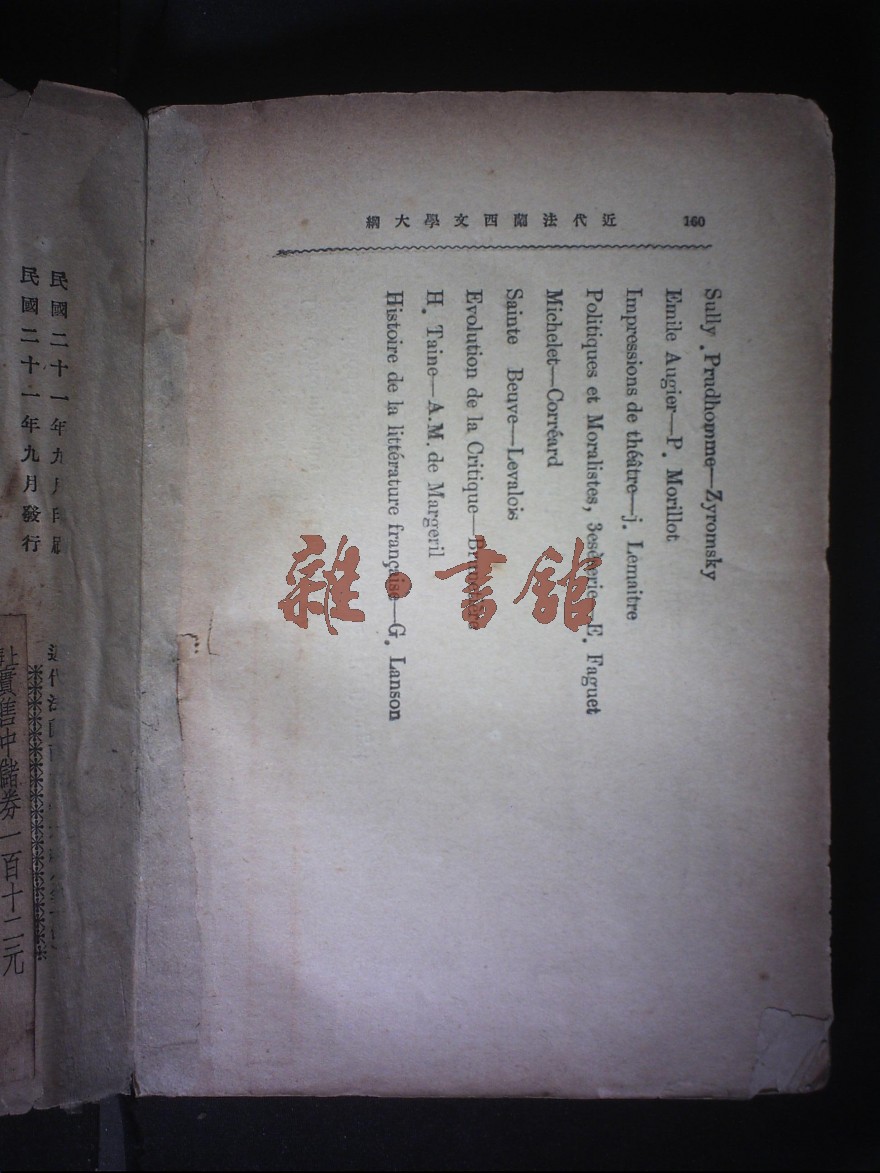 160
近代法蘭西文學大綱
Sully Prudhomme—Zyromsky
Emile Augier—P. Morillot
Impressions de théâtre—j. Lemaitre
Politiques et Moralistes, 3e E. Faguet
Michelet—Corréard
Sainte Beuve—Levalois
Evolution de la Critique—
H. Taine—A.M. de Margeril
Histoire de la littérature française—G. Lanson
雜·書館
民國二十一年九月印刷
民國二十一年九月發行
近代法
實售中儲券一百十二元